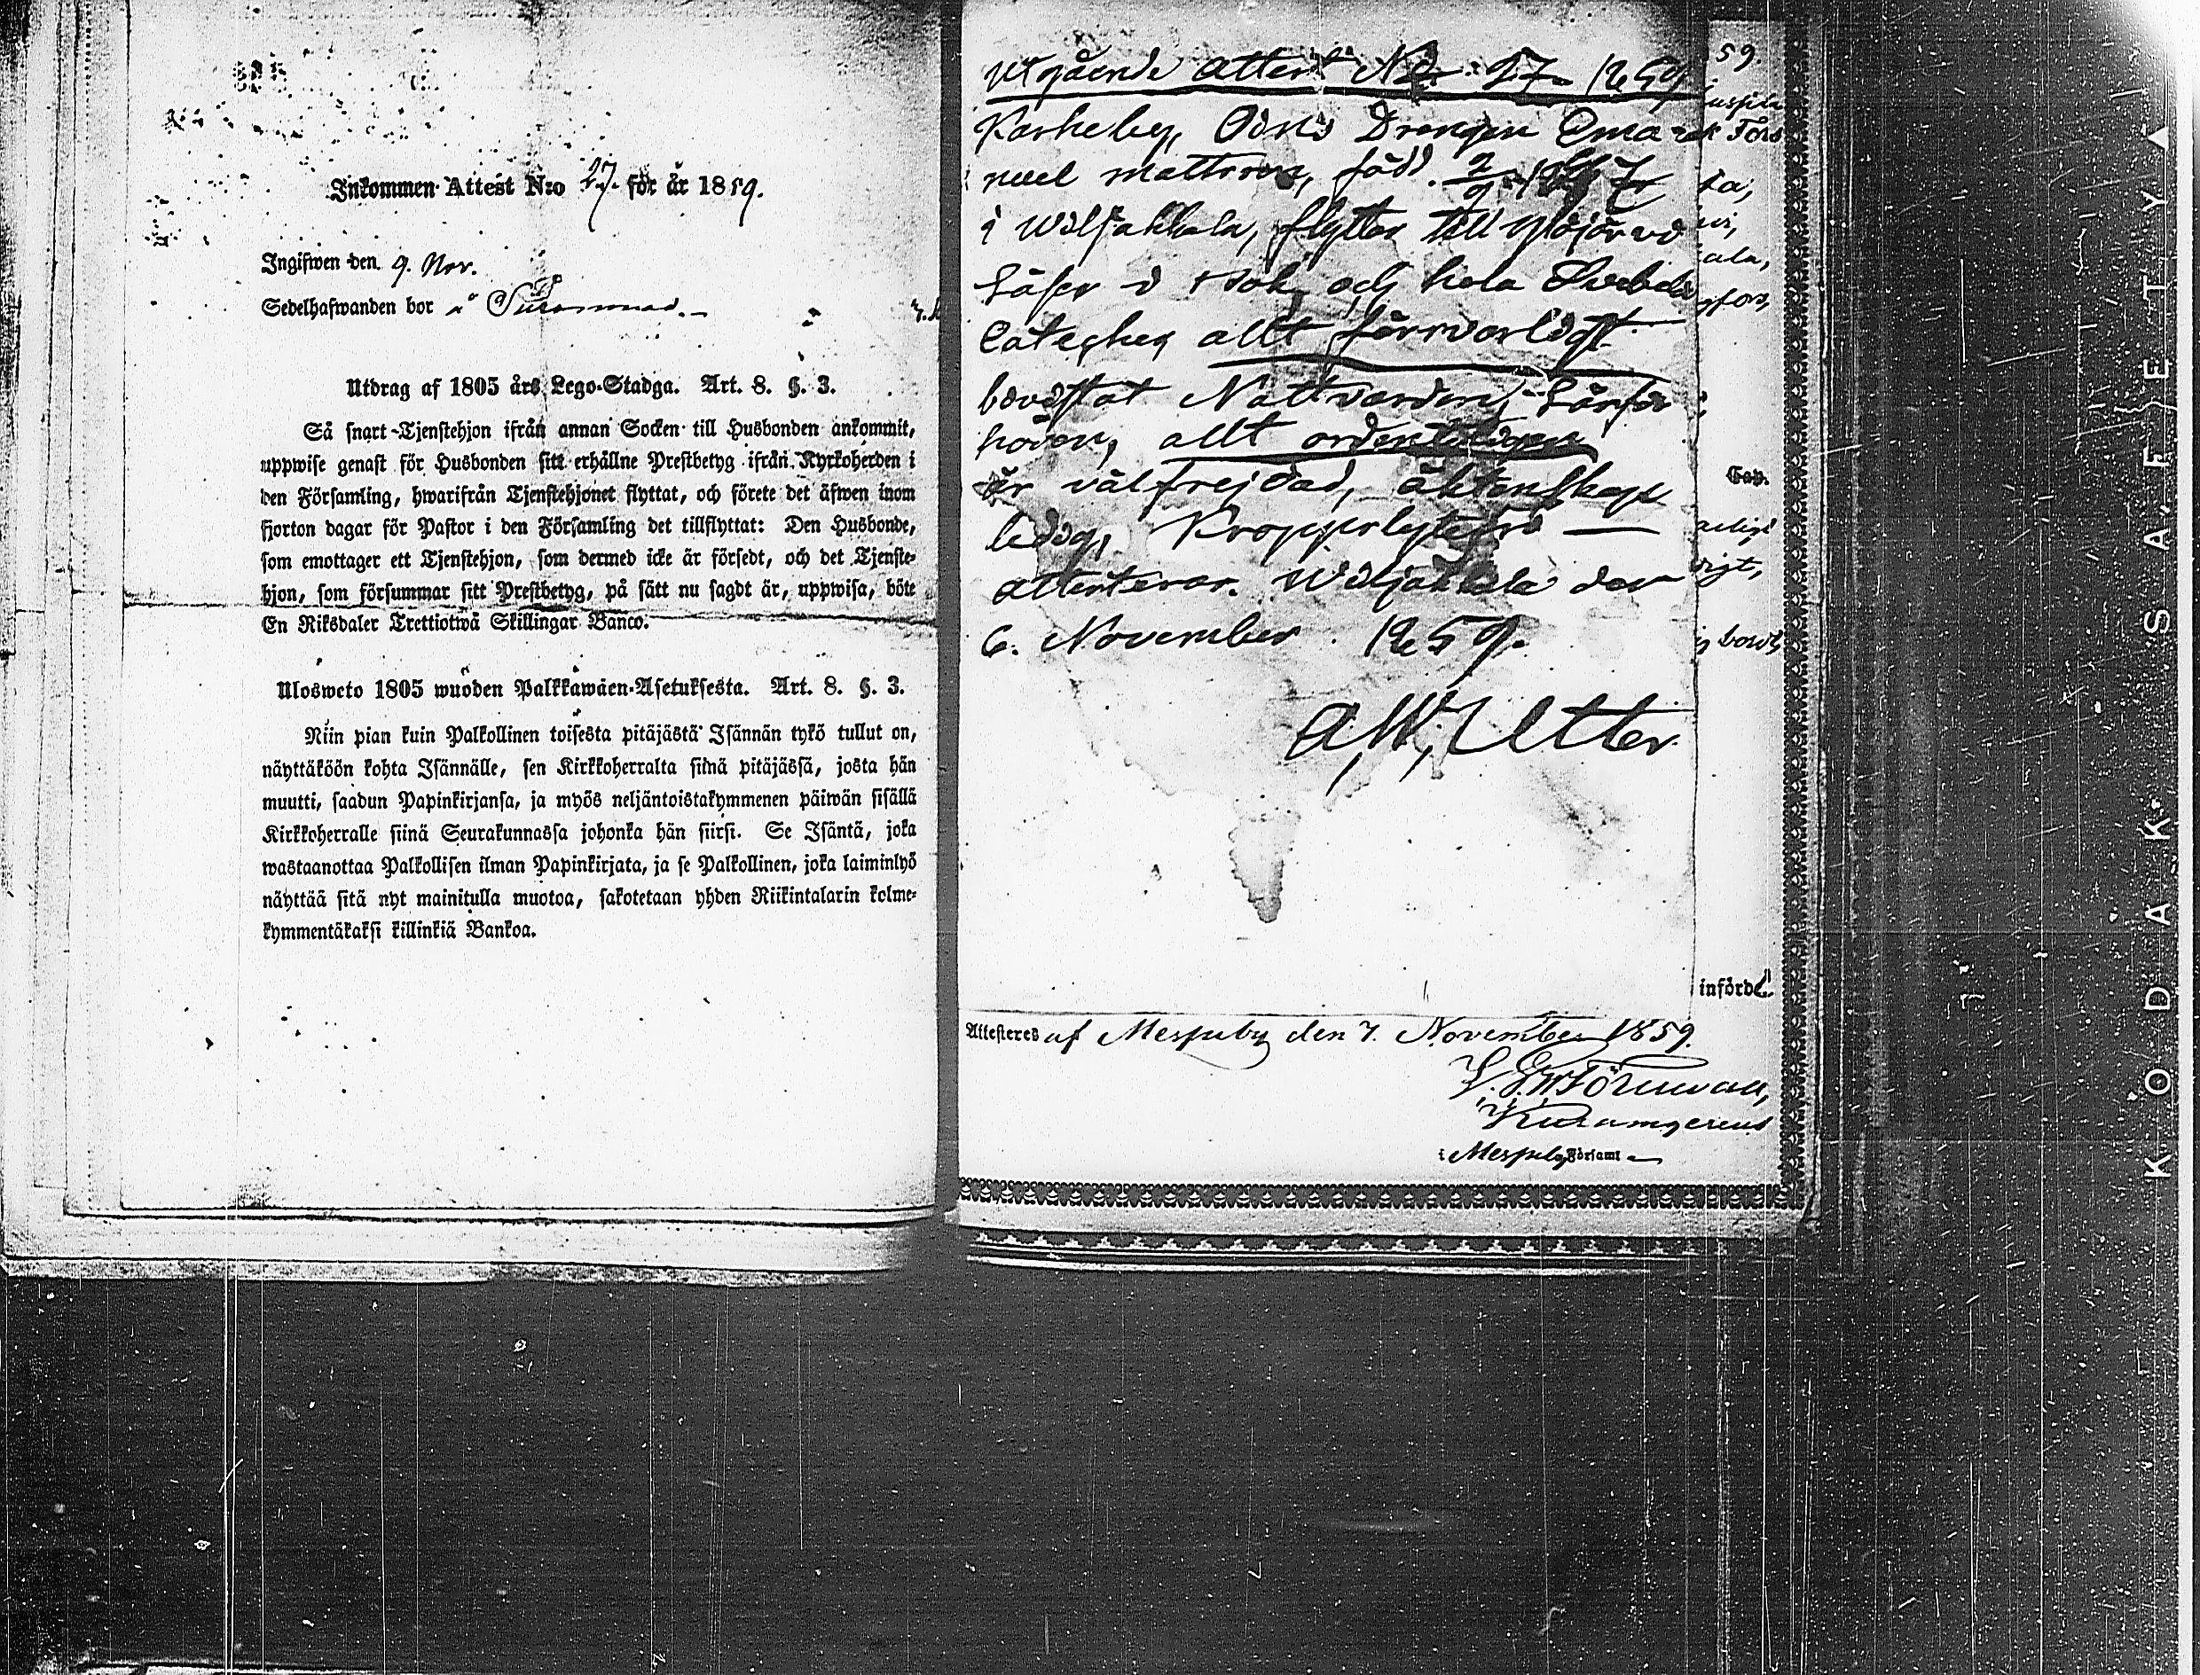 Inkommen Attest N:o 27. för år 1859.
Ingifwen den 9. Nov.
Sedelhafwanden bor å
Utdrag af 1805 års Lego-Stadga. Art. 8. §. 3.
Så snart Tjenstehjon ifrån annan Socken till Husbonden ankommit,
uppwise genast för Husbonden sitt erhållne Prestbetyg ifrån Kyrkoherden i
den Församling, hwarifrån Tjenstehjonet flyttat, och förete det äfwen inom
fjorton dagar för Pastor i den Församling det tillflyttat: Den Husbonde,
som emottager ett Tjenstehjon, som dermed icke är försedt, och det Tjenste-
hjon, som försummar sitt Prestbetyg, på sätt nu sagdt är, uppwisa, böte
En Riksdaler Trettiotwå Skillingar Banco.
Ulosweto 1805 wuoden Palkkawäen-Asetuksesta. Art. 8. §. 3.
Niin pian kuin Palkollinen toisesta pitäjästä Isännän tykö tullut on,
näyttäköön kohta Isännälle, sen Kirkkoherralta siinä pitäjässä, josta hän
muutti, saadun Papinkirjansa, ja myös neljäntoistakymmenen päiwän sisällä
Kirkkoherralle siinä Seurakunnassa johonka hän siirsi. Se Isäntä, joka
wastaanottaa Palkollisen ilman Papinkirjata, ja se Palkollinen, joka laiminlyö
näyttää sitä nyt mainitulla muotoa, sakotetaan yhden Riikintalarin kolme-
kymmentäkaksi killinkiä Bankoa.
Utgående attest No 27 1859
Karheby, Drengen Ema-
nuel mattsson, född
i Wiljakkala, flyttar till
Läser i bok och hela
Cateches allt försvarligt
bevistat Nattvarden, Läsför
hören, allt ordentligen
är välfrejdad, äktenskaps
ledig, Kroppslytesfri —
attesterar. Wiljakkala den
6. November 1859.
A. W. Utter.
59.
införd.
Attesteres af Messuby den 7. November 1859.
i Messuby Förs amt
KODAK SAFETY